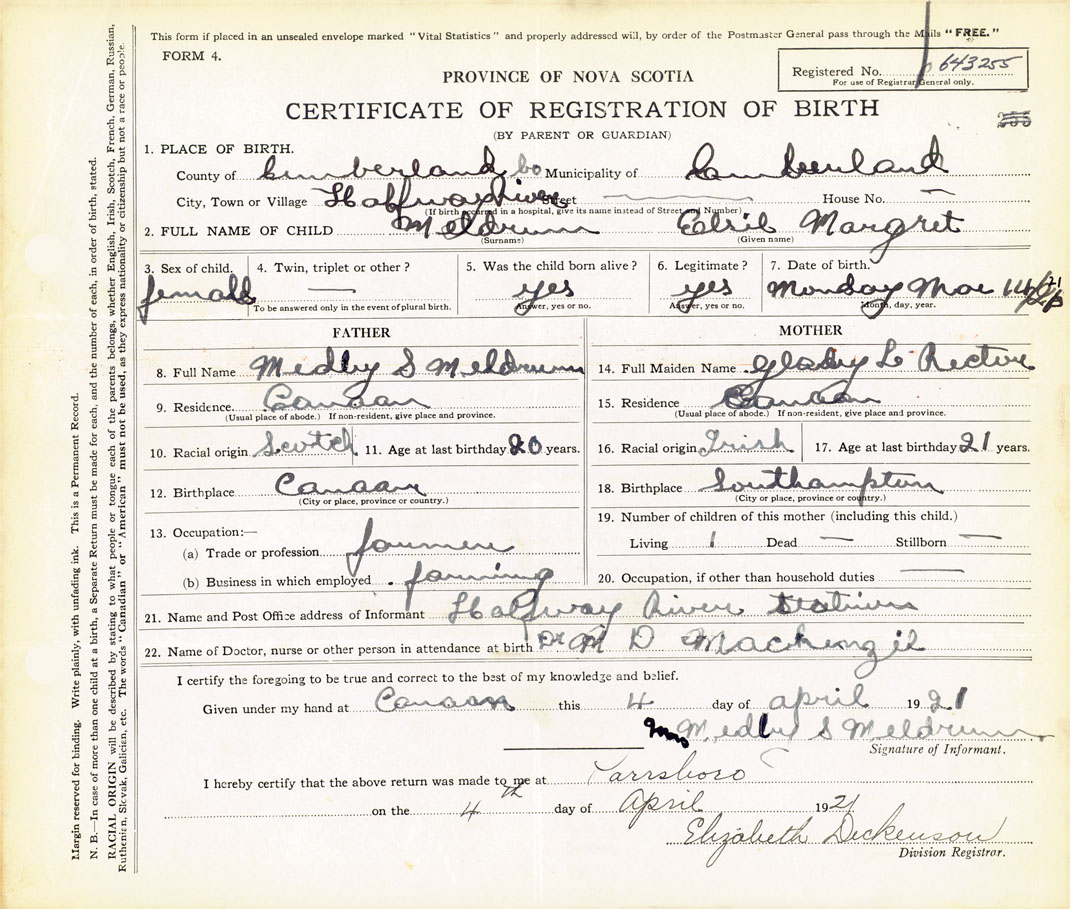 This form if placed in an unsealed envelope marked "Vital Statistics" and properly addressed will, by order of the Postmaster General pass through the Mails "FREE."
FORM 4.
PROVINCE OF NOVA SCOTIA
Registered No. 643255
For use of Registrar General only.
CERTIFICATE OF REGISTRATION OF BIRTH
255
(BY PARENT OR GUARDIAN)
1. PLACE OF BIRTH.
County of Cumberland Co Municipality of Cumberland
City, Town or Village Halfway River Street — House No. —
(If birth occurred in a hospital, give its name instead of Street and Number)
2. FULL NAME OF CHILD Meldrum Margret
(Surname) (Given name)
3. Sex of child. 4. Twin, triplet or other? 5. Was the child born alive? 6. Legitimate? 7. Date of birth.
female — yes yes Monday Mar 14
To be answered only in the event of plural birth. Answer, yes or no. Answer, yes or no. Month, day, year.
FATHER
8. Full Name Medley S Meldrum
9. Residence. Canaan
(Usual place of abode.) If non-resident, give place and province.
10. Racial origin Scotch 11. Age at last birthday 20 years.
12. Birthplace Canaan
(City or place, province or country.)
13. Occupation:—
(a) Trade or profession farmer
(b) Business in which employed farming
MOTHER
14. Full Maiden Name Glady L
15. Residence Canaan
(Usual place of abode.) If non-resident, give place and province.
16. Racial origin Irish 17. Age at last birthday 21 years.
18. Birthplace Southampton
(City or place, province or country.)
19. Number of children of this mother (including this child.)
Living 1 Dead — Stillborn —
20. Occupation, if other than household duties —
21. Name and Post Office address of Informant Halfway River Station
22. Name of Doctor, nurse or other person in attendance at birth Dr M D Mackenzie
I certify the foregoing to be true and correct to the best of my knowledge and belief.
Given under my hand at Canaan this 4 day of april 1921
Mrs Medley S Meldrum
Signature of Informant.
I hereby certify that the above return was made to me at Parrsboro
on the 4th day of April 1921
Elizabeth Dickenson
Division Registrar.
Margin reserved for binding. Write plainly, with unfading ink. This is a Permanent Record.
N. B.—In case of more than one child at a birth, a Separate Return must be made for each, and the number of each, in order of birth, stated.
RACIAL ORIGIN will be described by stating to what people or tongue each of the parents belongs, whether English, Irish, Scotch, French, German, Russian,
Ruthenian, Slovak, Galician, etc. The words "Canadian" or "American" must not be used, as they express nationality or citizenship but not a race or people.